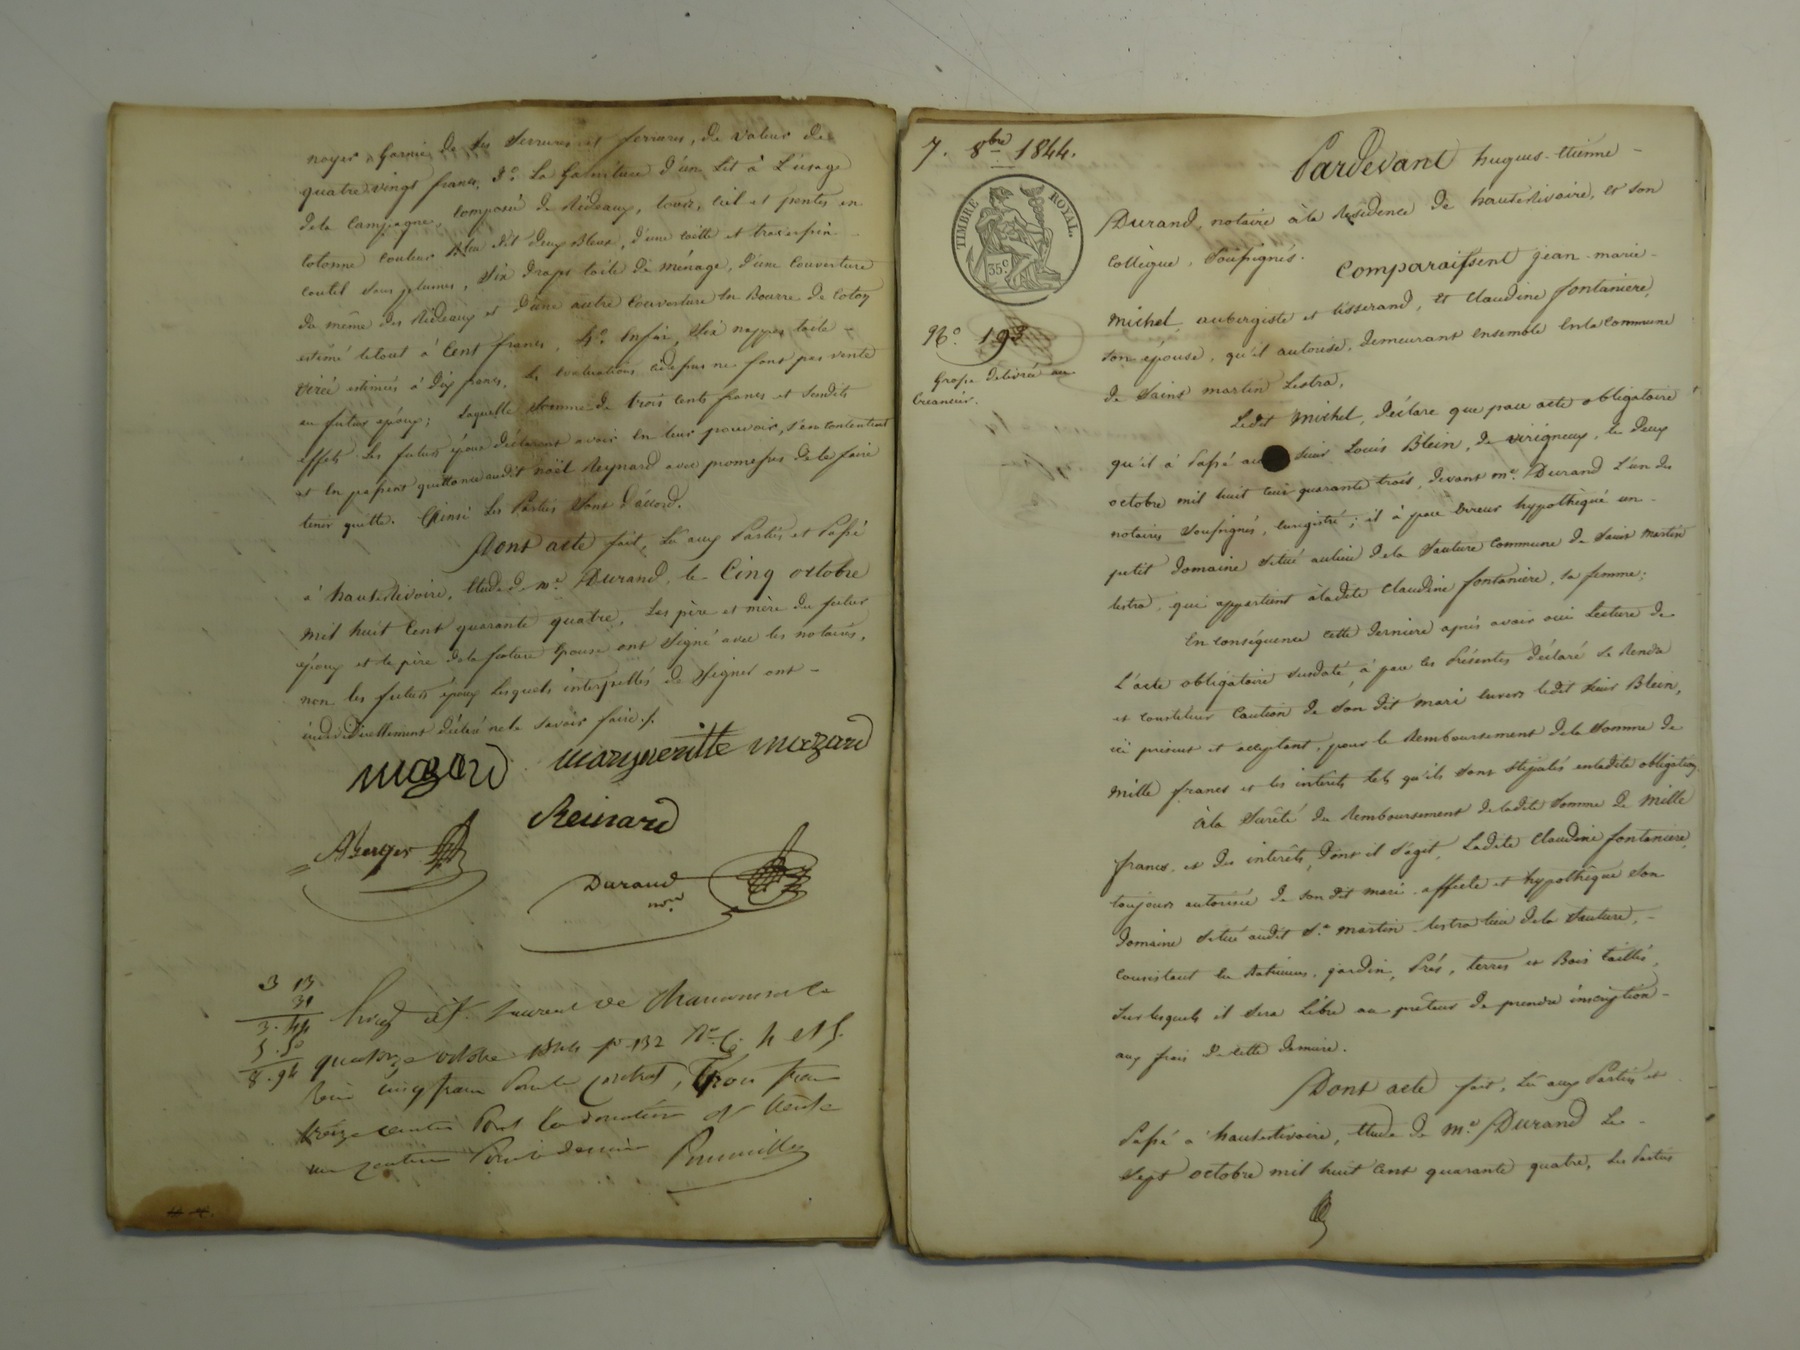 noyer garnie de ses serrures et ferrures, de valeur de
quatre vingt francs, 3.° La garniture d'un Lit à L'usage
dela Campagne, composée de Rideaux, tour, ciel et pentes en
cotonne couleur bleu dit deux Bleux, d'une coitte et traversin
coutil sans plumes, Six draps toile de ménage, d'une Couverture
du même des Rideaux et d'une autre Couverture en Bourre de Coton
estimé letout à Cent francs, 4.° Enfin, Six nappes toile
estimées à dix francs, Les évaluations cidessus ne font pas vente
au futur époux; Laquelle Somme de trois Cents francs et Susdits
effets Les futurs époux déclarent avoir en leur pouvoir, s'en contentent
et en passent quittance audit noël Reynard avec promesses dele faire
tenir quitte. Ainsi Les Parties Sont d'accord.
Dont acte fait, Lu aux Parties et Passé
à hauterivoire, Etude de m.e Durand, le Cinq octobre
mil huit Cent quarante quatre, Les père et mère du futur
époux et le père dela future Epouse ont Signé avec les notaires,
non les futurs époux Lesquels interpellés de Signer ont
individuellement déclaré nele Savoir faire./.
mozard Margueritte mozard
Reinard
ABerger
Durand
nore
3 13
31
3.44
5.50
8.94
Enreg à St. Laurent de Chamousset le
quatorze octobre 1844 fo 132 Ro C. 4 et 5.
Reçu cinq francs Pour le contrat, Trois francs
treize centimes Pour la donation et trente
un centimes Pour le decime
7. 8bre 1844.
TIMBRE ROYAL.
35c
No. 193
Grosse delivrée au
Créancier.
Pardevant hugues-Etienne
Durand, notaire àla Résidence de hauterivoire, et son
Collègue, Soussignés.
Comparaissent jean-marie
michel, aubergiste et tisserand, Et Claudine fontaniere,
son epouse, qu'il autorise, demeurant ensemble Enla Commune
de Saint martin Lestra,
Ledit Michel, déclare que par acte obligatoire
qu'il à Passé au Sieur Louis Blein, de virigneux, le deux
octobre mil huit cent quarante trois, devant m.e Durand L'un des
notaires Soussignés, Enregistré; il à par Erreur hypothèqué un
petit domaine Situé aulieu dela Sauture Commune de Saint martin
lestra, qui appartient àladite Claudine fontanière, sa femme;
En conséquence cette derniere après avoir oui Lecture de
L'acte obligatoire Susdaté, à par les Présentes déclaré Se Rendre
et constituer Caution de Son dit mari envers ledit Sieur Blein,
ici présent et acceptant, pour le Remboursement dela Somme de
Mille francs et les intérêts tels qu'ils Sont Stipulés enladite obligation.
àla Sûrété du Remboursement deladite Somme de Mille
francs, et des intérêts, dont il s'agit, Ladite Claudine fontaniere,
toujours autorisée de Son dit mari affecte et hypothèque Son
domaine Situé audit St. martin-lestra lieu dela Sauture,
consistant En Batiments, jardin, Prés, terres et Bois taillis,
Sur lesquels il Sera Libre au prêteur de prendre inscription
aux frais de cette derniere.
Dont acte fait, Lu aux Parties et
Passé à hauterivoire, Etude de m.e Durand Le
Sept octobre mil huit Cent quarante quatre, Les Parties